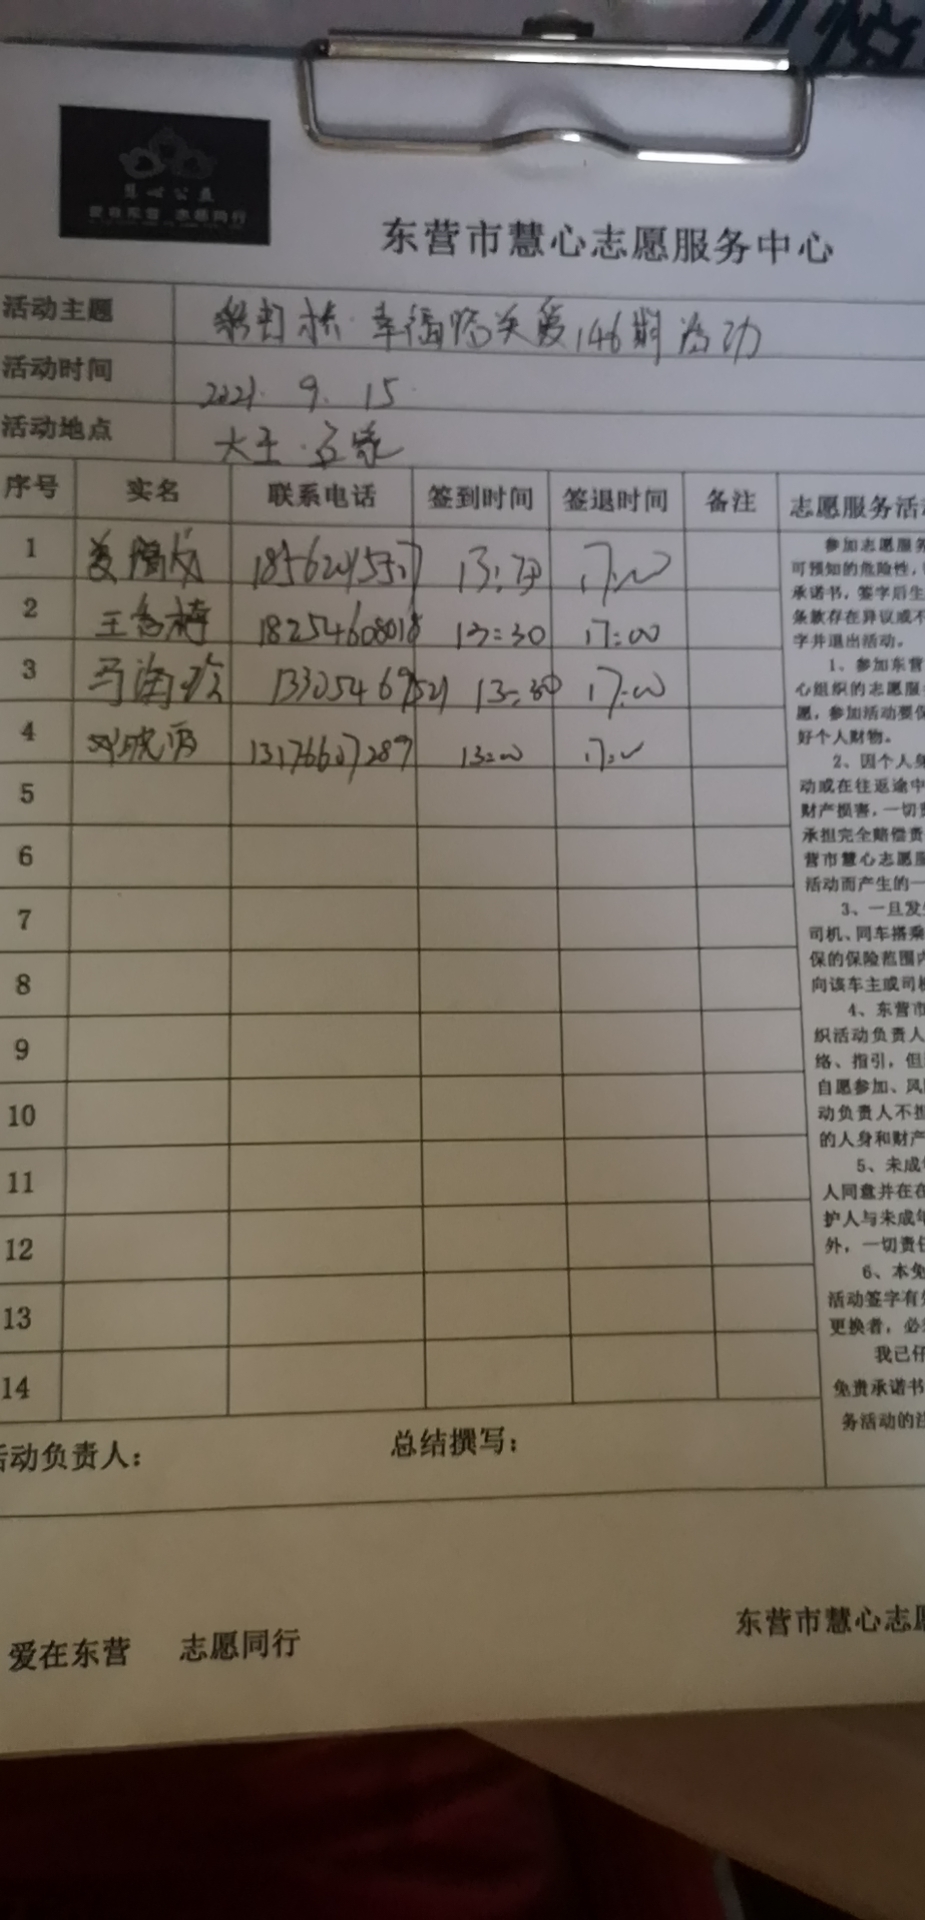 慧心公益
爱在东营 志愿同行
东营市慧心志愿服务中心
活动主题 幸福 关爱146期活动
活动时间 2021. 9. 15
活动地点 大王.
序号 实名 联系电话 签到时间 签退时间 备注 志愿服务活
1 17:00
2 王 18254608018 13:30 17:00
3 马海 13305469521 13:30 17:00
4 邓 13176607289 13:00 17:00
5
6
7
8
9
10
11
12
13
14
参加志愿服务
可预知的危险性,
承诺书,签字后生
条款存在异议或不
字并退出活动。
1、参加东营
心组织的志愿服
愿,参加活动要保
好个人财物。
2、因个人身
动或在往返途中
财产损害,一切责
承担完全赔偿责
营市慧心志愿服
活动而产生的一
3、一旦发生
司机、同车搭乘
保的保险范围内
向该车主或司机
4、东营市
织活动负责人
络、指引,但
自愿参加、风险
动负责人不担
的人身和财产
5、未成年
人同意并在在
护人与未成年
外,一切责任
6、本免
活动签字有效
更换者,必须
我已仔
免责承诺书
务活动的注
活动负责人: 总结撰写:
爱在东营 志愿同行 东营市慧心志愿